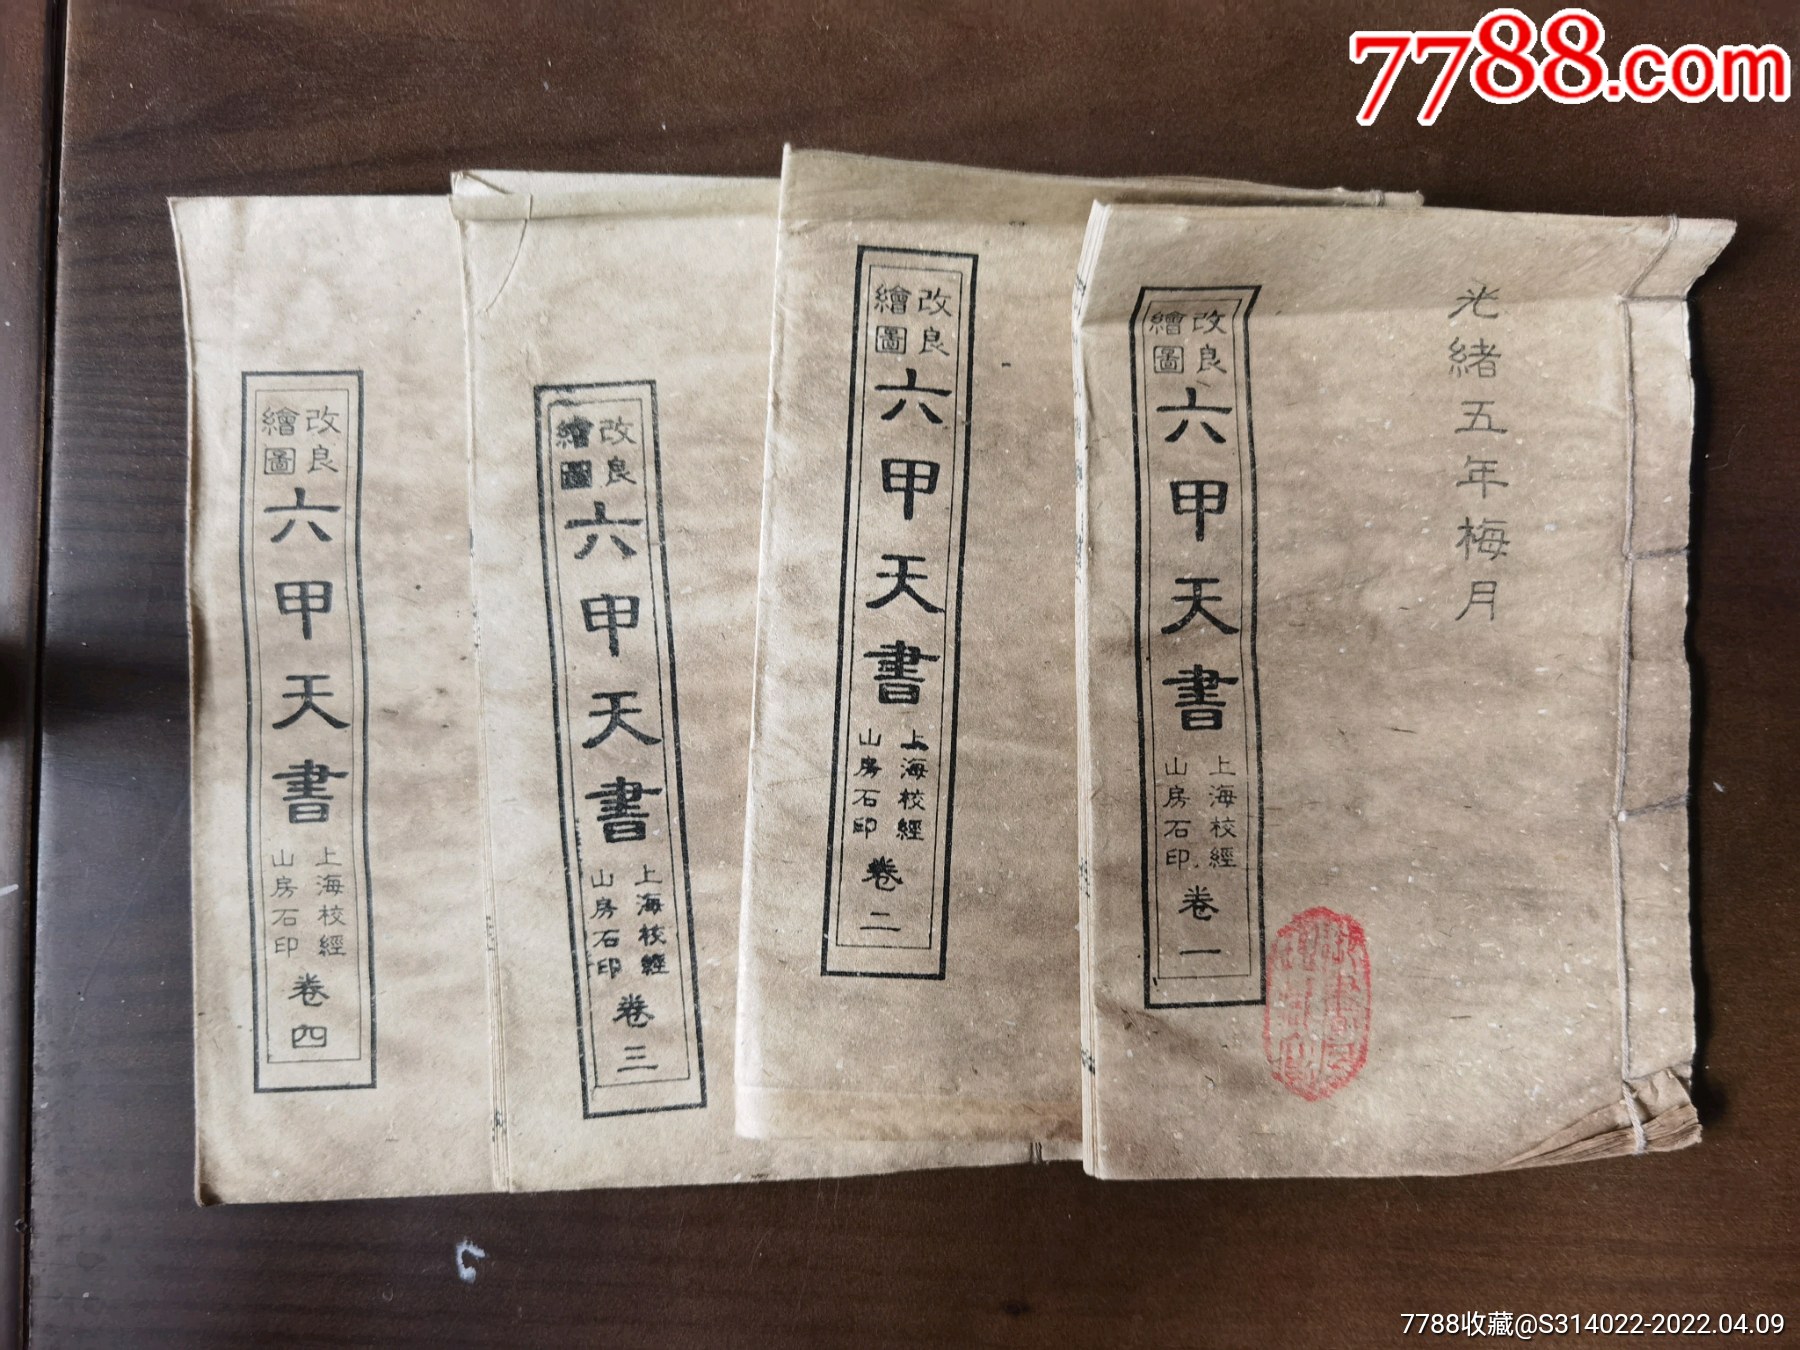 7788.com
光緒五年梅月
改良
繪圖
六甲天書
上海校經
山房石印
卷一
改良
繪圖
六甲天書
上海校經
山房石印
卷二
改良
繪圖
六甲天書
上海校經
山房石印
卷三
改良
繪圖
六甲天書
上海校經
山房石印
卷四
7788收藏@S314022-2022.04.09